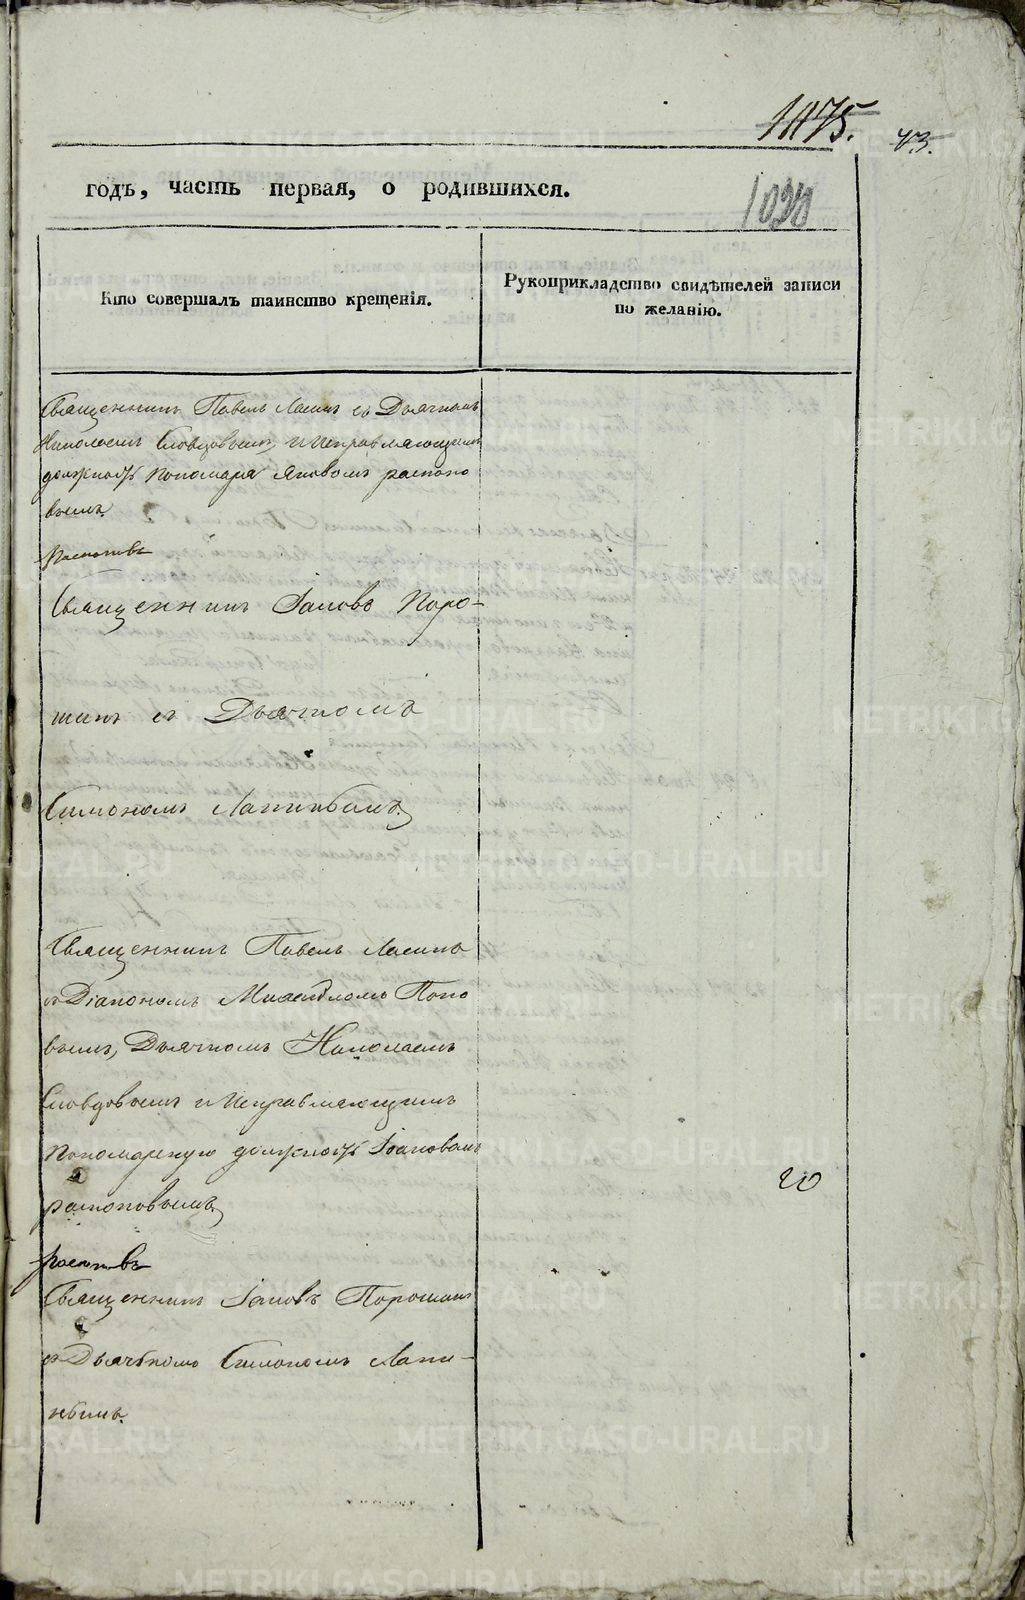 1175.
43.
годъ, часть первая, о родившихся.
1030
Кто совершалъ таинство крещенія.
Рукоприкладство свидѣтелей записи
по желанію.
Священникъ Павелъ съ Дьячкомъ
Николаемъ Словцовымъ и исправляющимъ
должность Пономаря Яковомъ распопо
вымъ.
Священникъ Іаковъ Поро-
шинъ съ Дьячкомъ
Симономъ Лапинымъ.
Священникъ Павелъ
съ Діакономъ Михаиломъ Попо
вымъ, Дьячкомъ Николаемъ
Словцовымъ и исправляющимъ
пономарскую должность Іаковомъ
распоповымъ
Священникъ Іаковъ Порошинъ
съ Дьячкомъ Симономъ Лапи-
нымъ.
20
METRIKI.GASO-URAL.RU